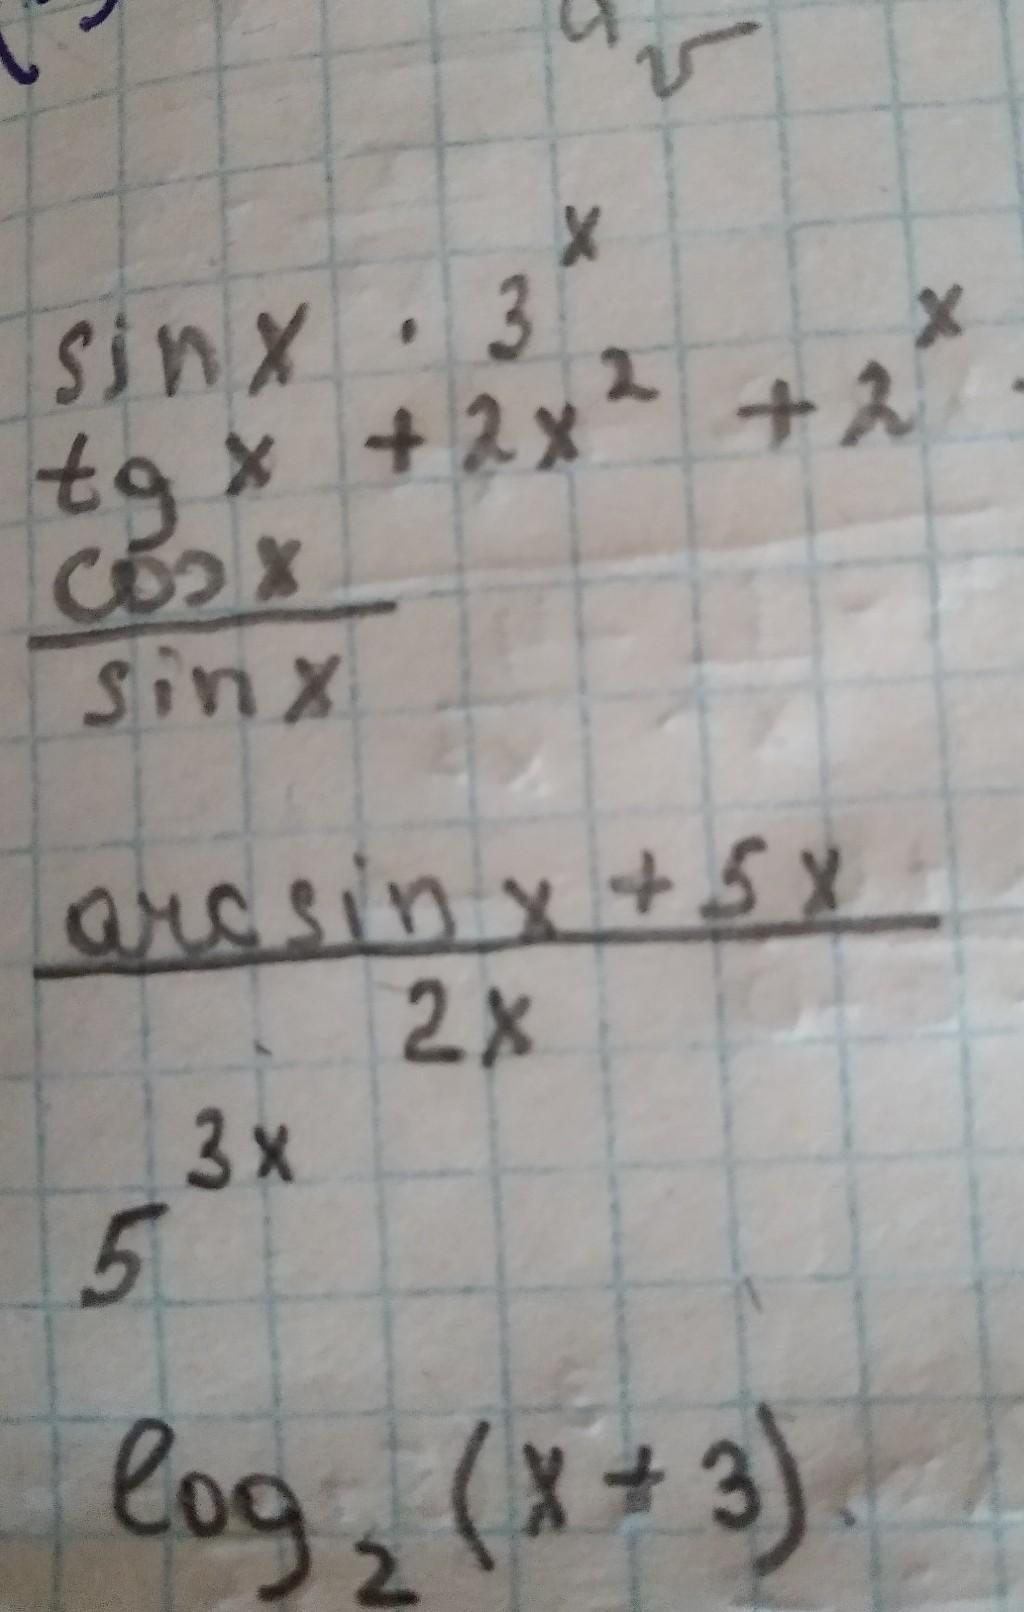 sin x · 3^x
tg x + 2x² + 2^x
cos x
sin x
arcsin x + 5x
2x
5^3x
log₂ (x + 3).